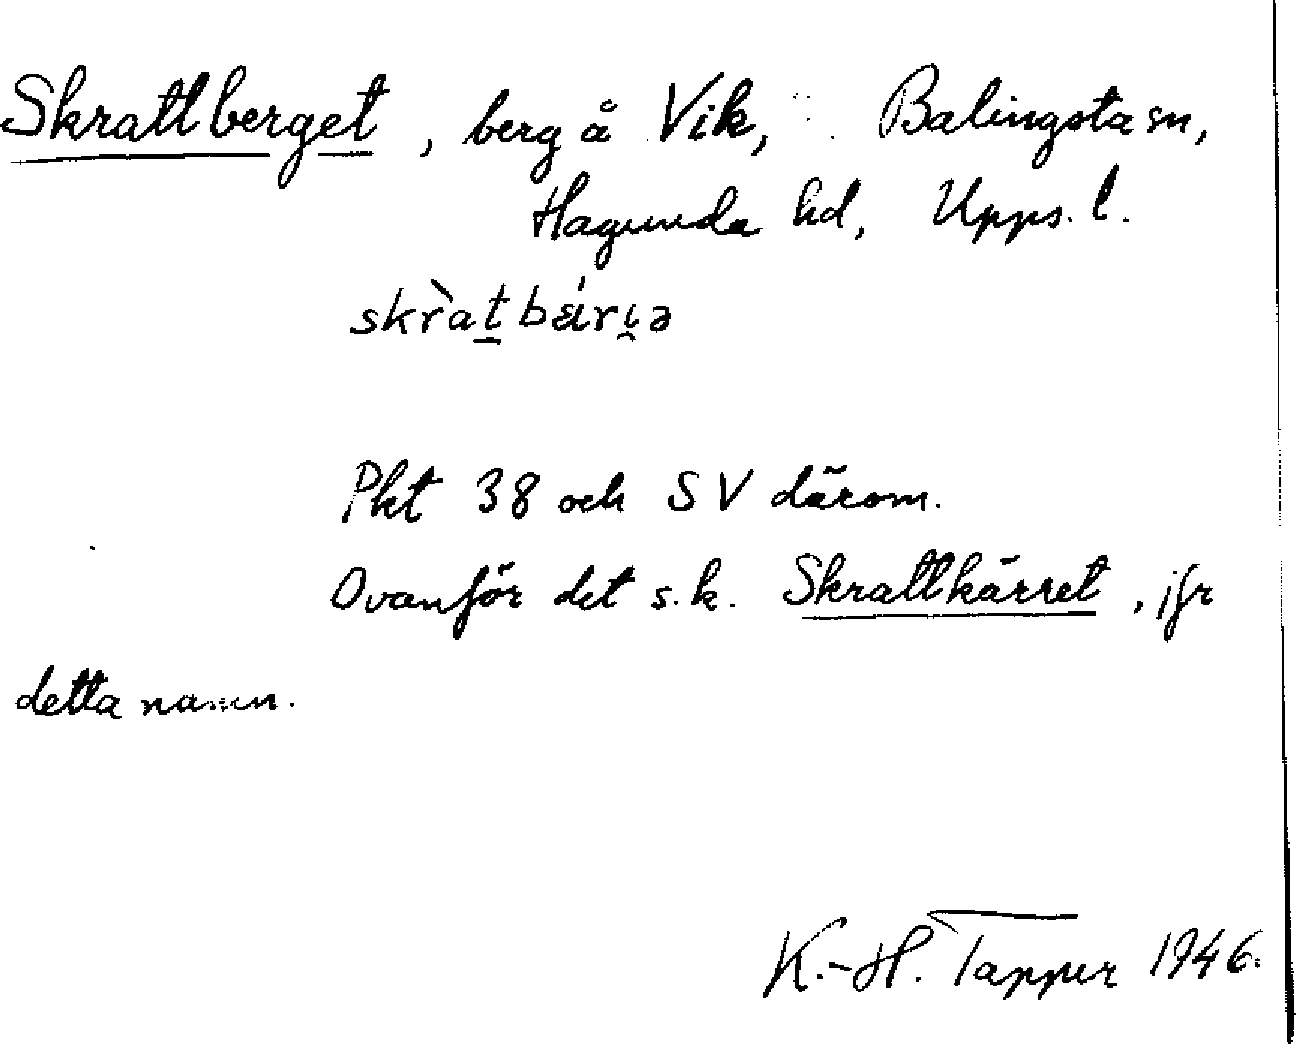 Skrattberget, berg å Vik, Balingsta sn,
Hagunda hd, Upps. l.
skr̀at̲bɛ́iri̯ə
Pkt 38 och SV därom.
Ovanför det s.k. Skrattkärret, jfr
detta namn.
K.-H. Tapper 1946.